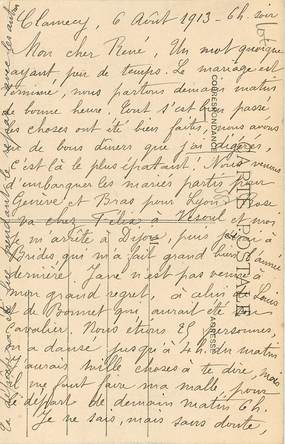 Clamecy, 6 Août 1913 - 6h. soir
Mon cher René, Un mot quoique
ayant peu de temps. Le mariage est
terminé, nous partons demain matin
de bonne heure. Tout s'est bien passé
les choses ont été bien faites, nous avons
eu de bons dîners que j'ai digérés,
C'est là le plus épatant. Nous venons
d'embarquer les mariés partis pour
Genève et Bras pour Lyon. Rose
va chez Félix à Vesoul et moi
je m'arrête à Dijon, puis
Brides, qui m'a fait grand bien l'année
dernière. Jane n'est pas venue à
mon grand regret, Louis
de Bonnet qui aurait été son
Cavalier. Nous étions 25 personnes,
on a dansé jusqu'à 4h. du matin
J'aurais mille choses à te dire, mais
il me faut faire ma malle, pour
départ de demain matin 6h.
Je ne sais, mais sans doute,
CARTE POSTALE
CORRESPONDANCE
ADRESSE